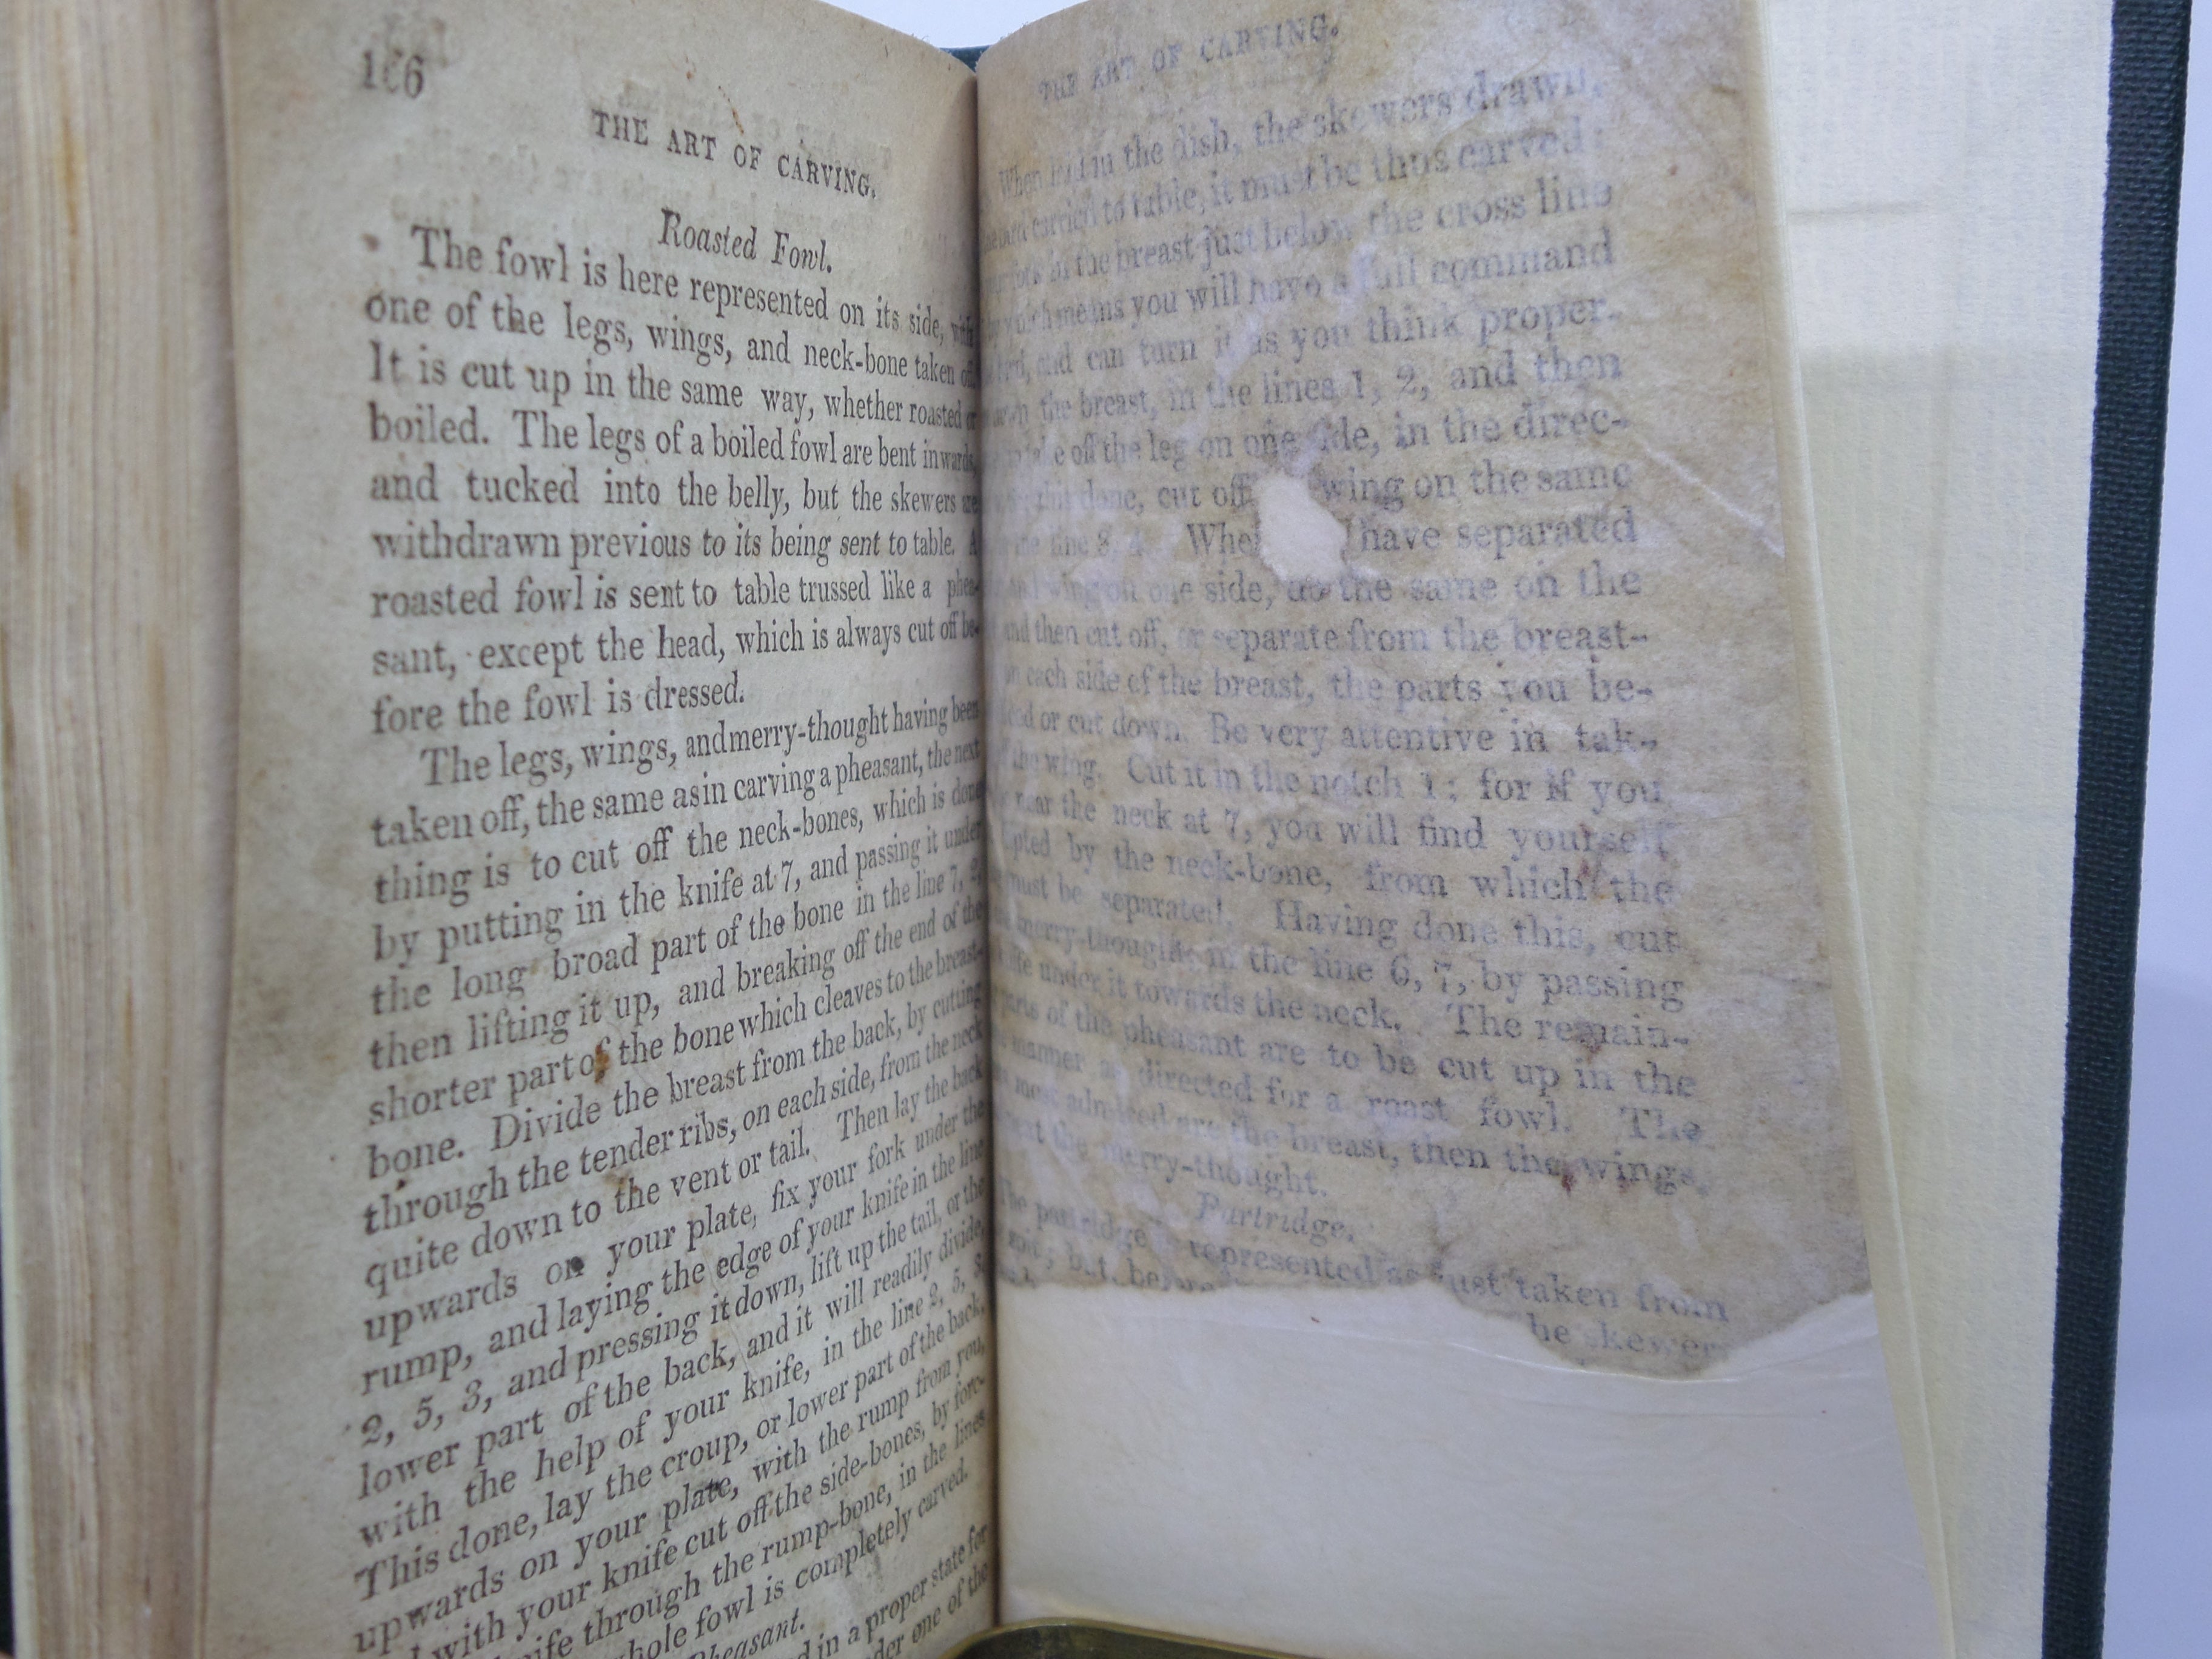 166
THE ART OF CARVING.
Roasted Fowl.
The fowl is here represented on its side, with
one of the legs, wings, and neck-bone taken off.
It is cut up in the same way, whether roasted or
boiled. The legs of a boiled fowl are bent inwards,
and tucked into the belly, but the skewers are
withdrawn previous to its being sent to table. A
roasted fowl is sent to table trussed like a phea-
sant, except the head, which is always cut off be-
fore the fowl is dressed.
The legs, wings, and merry-thought having been
taken off, the same as in carving a pheasant, the next
thing is to cut off the neck-bones, which is done
by putting in the knife at 7, and passing it under
the long broad part of the bone in the line 7, 2,
then lifting it up, and breaking off the end of the
shorter part of the bone which cleaves to the breast-
bone. Divide the breast from the back, by cutting
through the tender ribs, on each side, from the neck
quite down to the vent or tail. Then lay the back
upwards on your plate, fix your fork under the
rump, and laying the edge of your knife in the line
2, 5, 3, and pressing it down, lift up the tail, or the
lower part of the back, and it will readily divide,
with the help of your knife, in the line 2, 5, 3.
This done, lay the croup, or lower part of the back,
upwards on your plate, with the rump from you,
with your knife cut off the side-bones, by forc-
through the rump-bone, in the lines
whole fowl is completely carved.
Pheasant.
in a proper state for
one of the
THE ART OF CARVING.
When in the dish, the skewers drawn,
carried to table, it must be thus carved:
in the breast just below the cross line
which means you will have a full command
and can turn it as you think proper.
the breast, in the lines 1, 2, and then
off the leg on one side, in the direc-
done, cut off wing on the same
line 3, 4. Whe have separated
wing on one side, do the same on the
and then cut off, or separate from the breast-
on each side of the breast, the parts you be-
or cut down. Be very attentive in tak-
the wing. Cut it in the notch 1; for if you
near the neck at 7, you will find yourself
by the neck-bone, from which the
must be separated. Having done this, cut
merry-thought in the line 6, 7, by passing
under it towards the neck. The remain-
parts of the pheasant are to be cut up in the
manner as directed for a roast fowl. The
most admired are the breast, then the wings,
next the merry-thought.
Partridge.
The partridge is represented as just taken from
but before
he skewer